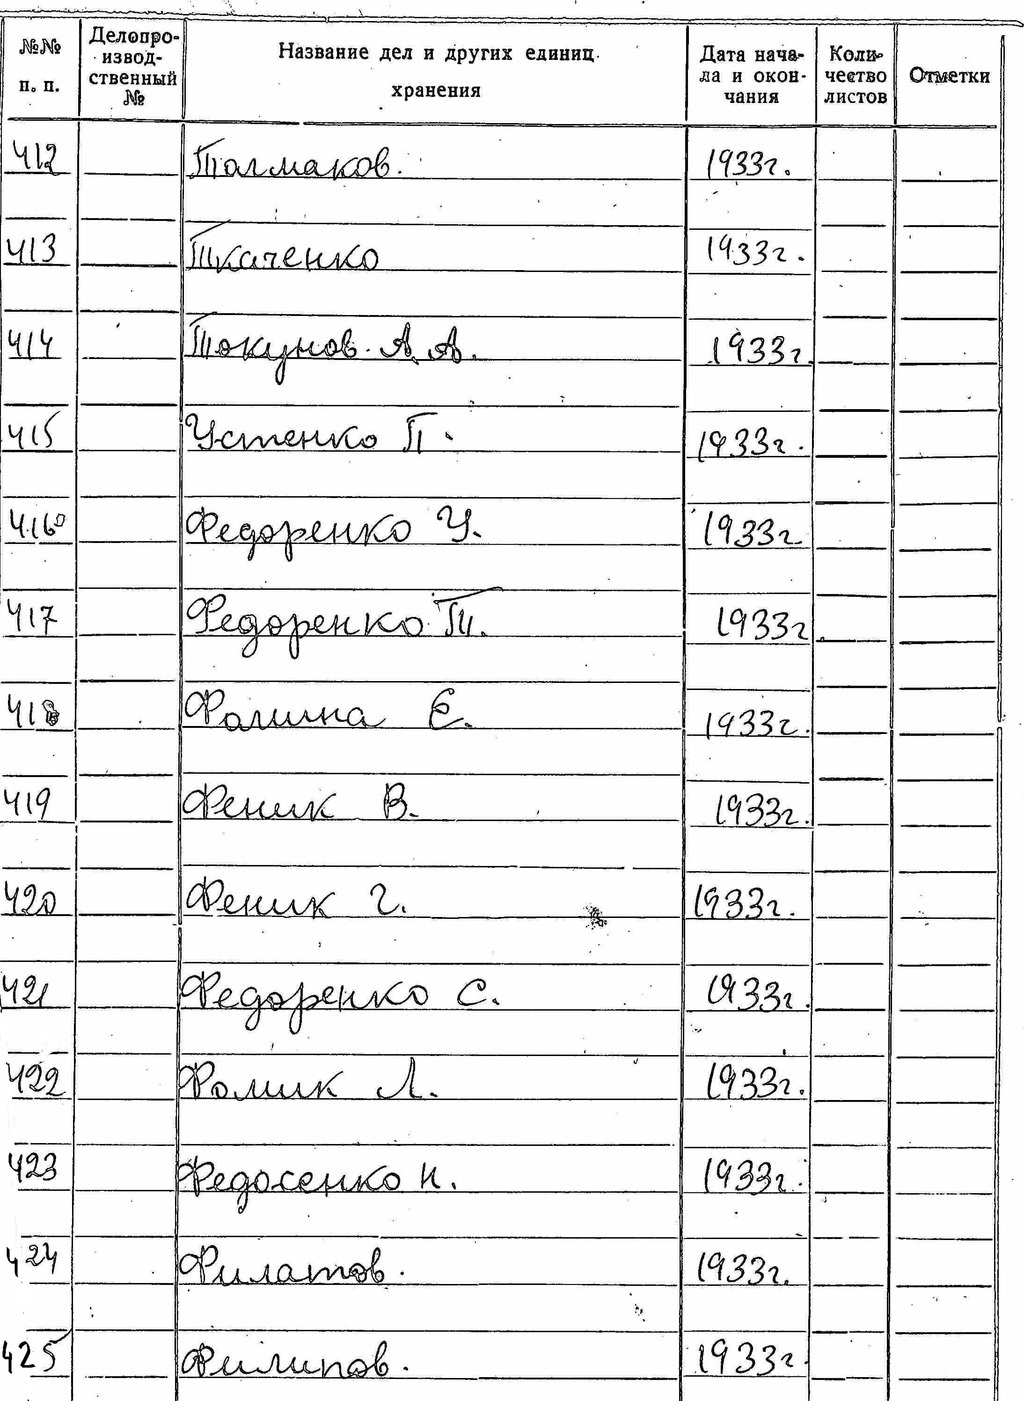 №№ п. п. Делопроизводственный № Название дел и других единиц хранения Дата начала и окончания Количество листов Отметки
412 Толмаков. 1933г.
413 Ткаченко 1933г.
414 Токунов. А. А. 1933г
415 Устенко П. 1933г.
416 Федоренко У. 1933г
417 Федоренко Т. 1933г
418 Фомина Е. 1933г.
419 Феник В. 1933г.
420 Феник Г. 1933г.
421 Федоренко С. 1933г.
422 Фомик Л. 1933г.
423 Федосенко Н. 1933г.
424 Филатов. 1933г.
425 Филипов. 1933г